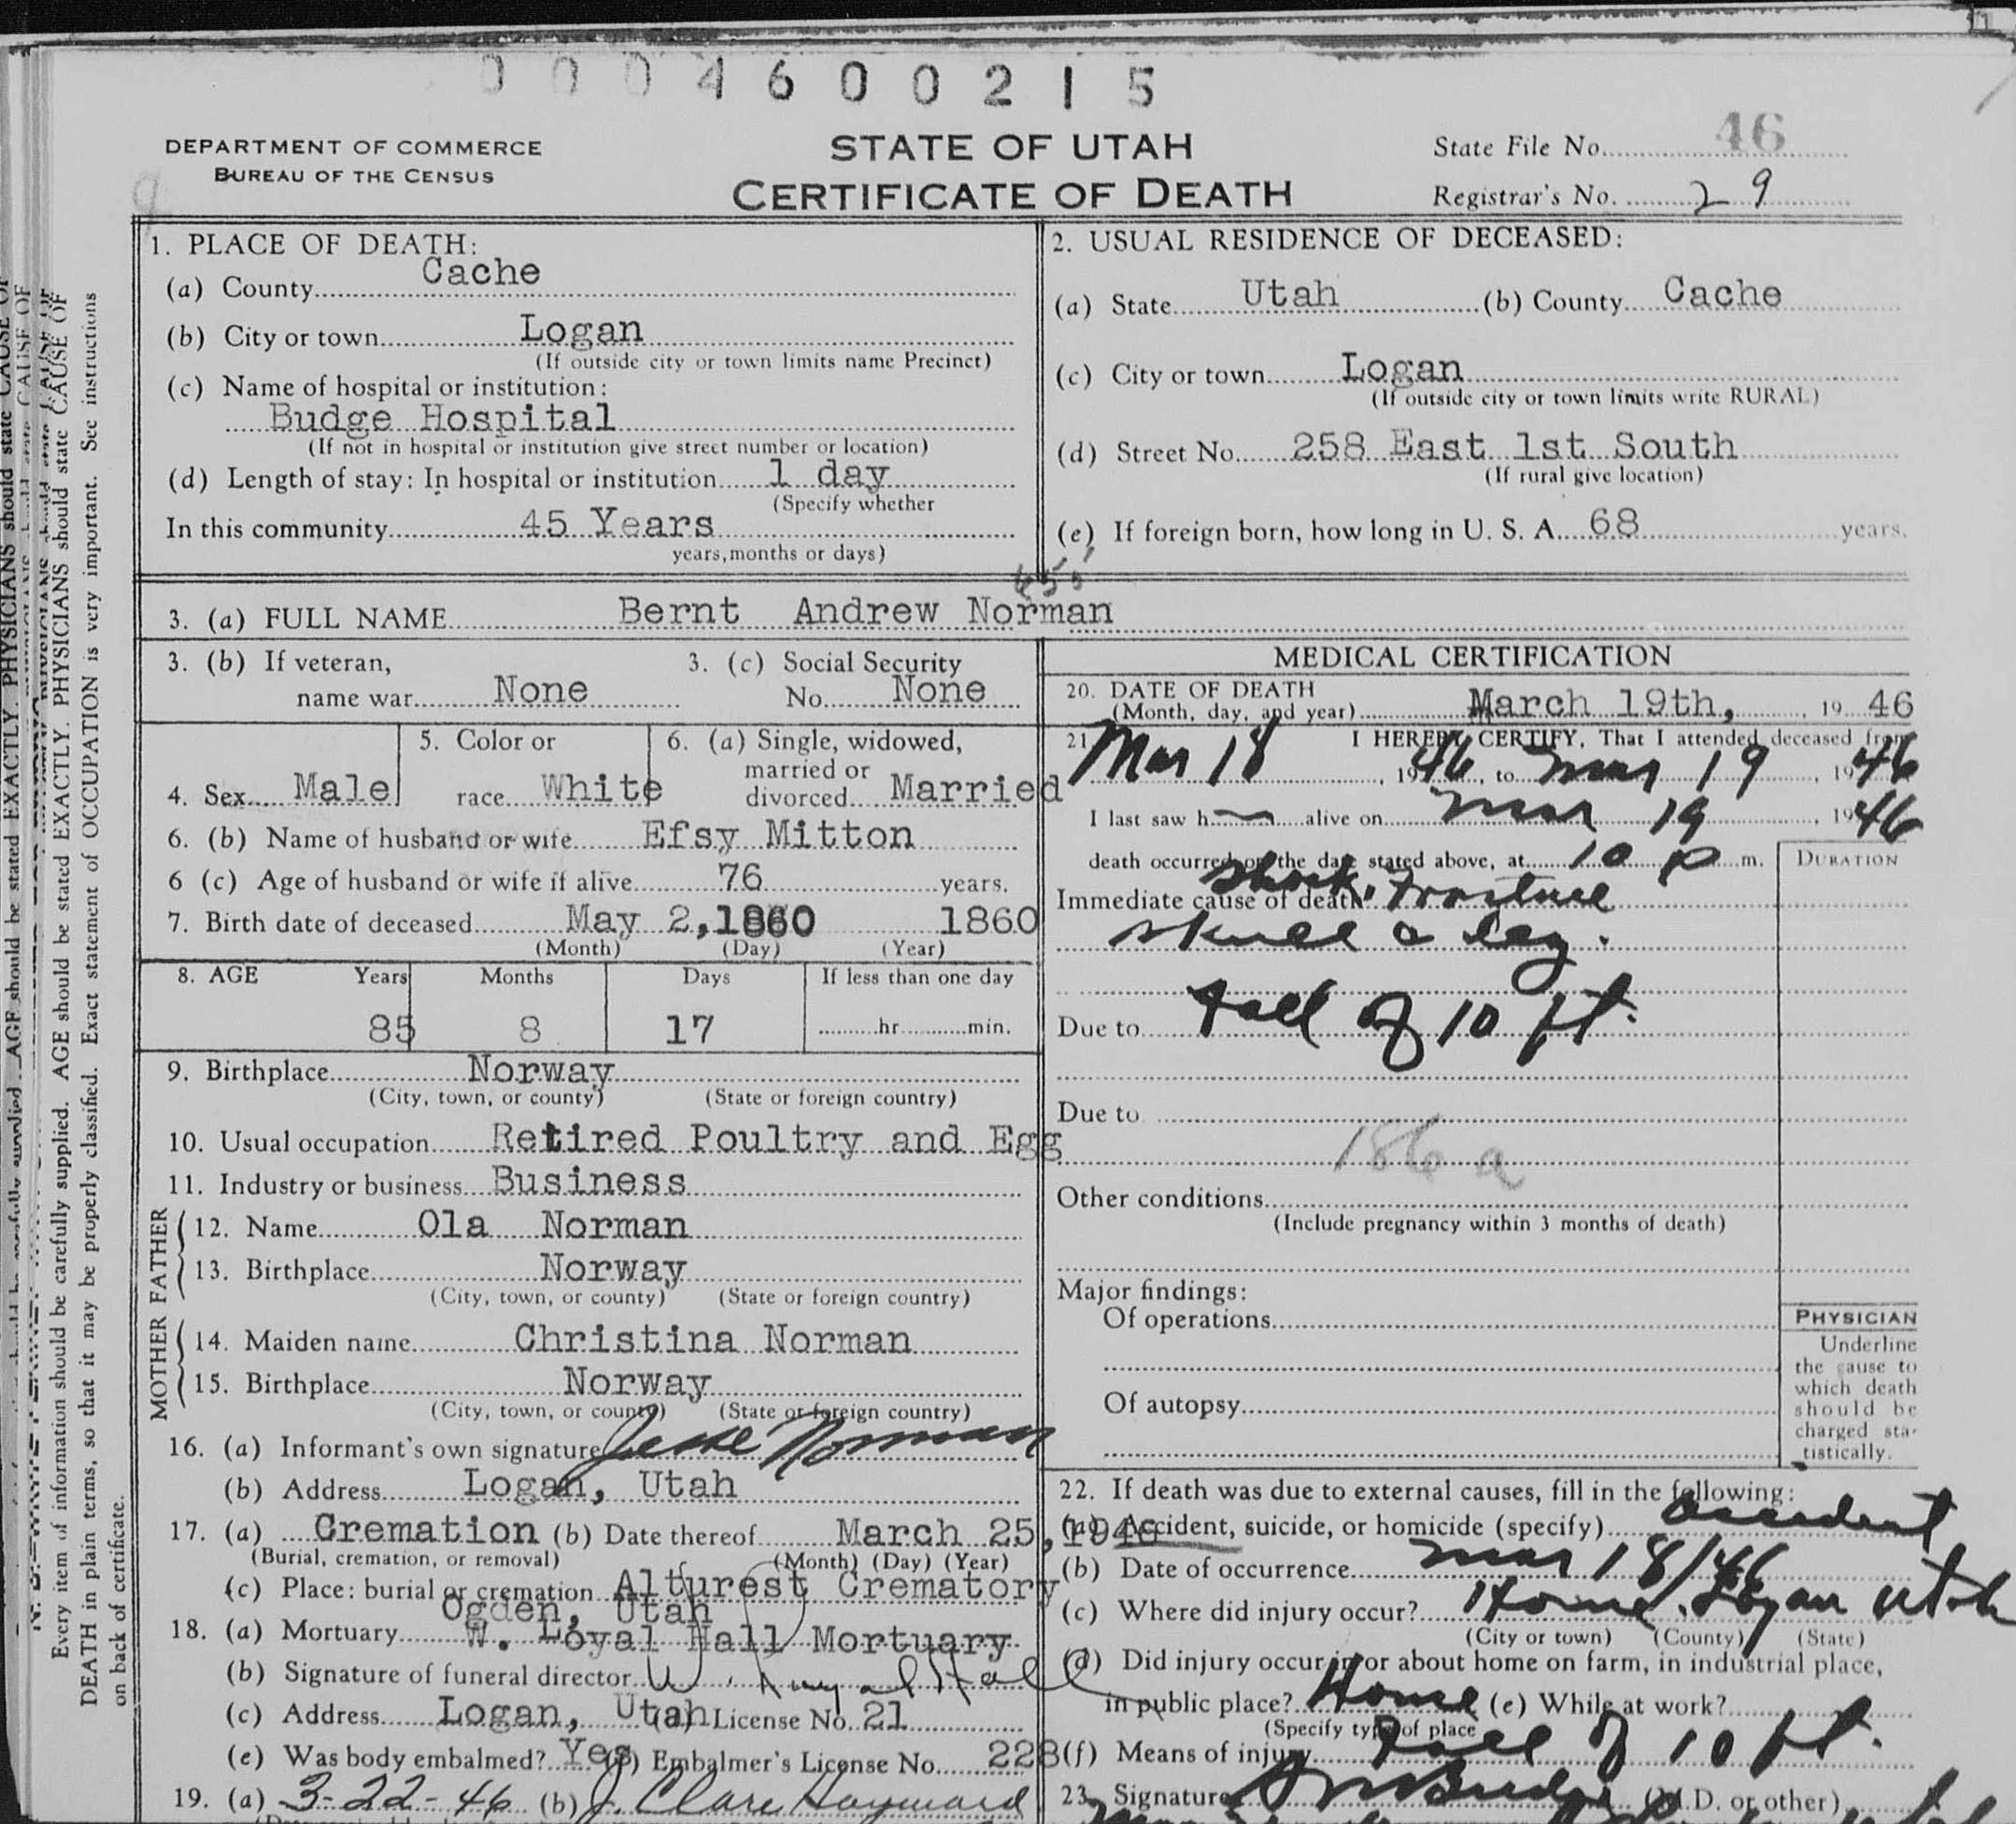 0004600215
DEPARTMENT OF COMMERCE
BUREAU OF THE CENSUS
STATE OF UTAH
CERTIFICATE OF DEATH
State File No. 46
Registrar's No. 29
1. PLACE OF DEATH:
(a) County Cache
(b) City or town Logan
(If outside city or town limits name Precinct)
(c) Name of hospital or institution:
Budge Hospital
(If not in hospital or institution give street number or location)
(d) Length of stay: In hospital or institution 1 day
(Specify whether
In this community 45 Years
years, months or days)
2. USUAL RESIDENCE OF DECEASED:
(a) State Utah (b) County Cache
(c) City or town Logan
(If outside city or town limits write RURAL)
(d) Street No. 258 East 1st South
(If rural give location)
(e) If foreign born, how long in U. S. A. 68 years.
3. (a) FULL NAME Bernt Andrew Norman
3. (b) If veteran,
name war None
3. (c) Social Security
No. None
4. Sex Male
5. Color or
race White
6. (a) Single, widowed,
married or
divorced Married
6. (b) Name of husband or wife Efsy Mitton
6 (c) Age of husband or wife if alive 76 years.
7. Birth date of deceased May 2, 1860 1860
(Month) (Day) (Year)
8. AGE Years Months Days If less than one day
85 8 17 hr. min.
9. Birthplace Norway
(City, town, or county) (State or foreign country)
10. Usual occupation Retired Poultry and Egg
11. Industry or business Business
FATHER
12. Name Ola Norman
13. Birthplace Norway
(City, town, or county) (State or foreign country)
MOTHER
14. Maiden name Christina Norman
15. Birthplace Norway
(City, town, or county) (State or foreign country)
16. (a) Informant's own signature Jesse Norman
(b) Address Logan, Utah
17. (a) Cremation (b) Date thereof March 25, 1946
(Burial, cremation, or removal) (Month) (Day) (Year)
(c) Place: burial or cremation Alturest Crematory
Ogden, Utah
18. (a) Mortuary W. Loyal Hall Mortuary
(b) Signature of funeral director W. Loyal Hall
(c) Address Logan, Utah License No. 21
(e) Was body embalmed? Yes Embalmer's License No. 228
19. (a) 3-22-46 (b) J. Clare Hayward
MEDICAL CERTIFICATION
20. DATE OF DEATH
(Month, day, and year) March 19th, 19 46
21. I HEREBY CERTIFY, That I attended deceased from
Mar 18, 19 46, to Mar 19, 19 46
I last saw h alive on Mar 19, 19 46
death occurred on the date stated above, at 10 p m.
DURATION
Immediate cause of death Shock, Fracture
skull & leg.
Due to Fall of 10 ft.
Due to
186 a
Other conditions
(Include pregnancy within 3 months of death)
Major findings:
Of operations
Of autopsy
PHYSICIAN
Underline
the cause to
which death
should be
charged sta-
tistically.
22. If death was due to external causes, fill in the following:
(a) Accident, suicide, or homicide (specify) accident
(b) Date of occurrence Mar 18/46
(c) Where did injury occur? Home. Logan Utah
(City or town) (County) (State)
(d) Did injury occur in or about home on farm, in industrial place,
in public place? Home (e) While at work?
(Specify type of place
(f) Means of injury Fall of 10 ft.
23. Signature (M.D. or other)
Every item of information should be carefully supplied. AGE should be stated EXACTLY. PHYSICIANS should state CAUSE OF
DEATH in plain terms, so that it may be properly classified. Exact statement of OCCUPATION is very important. See instructions
on back of certificate.